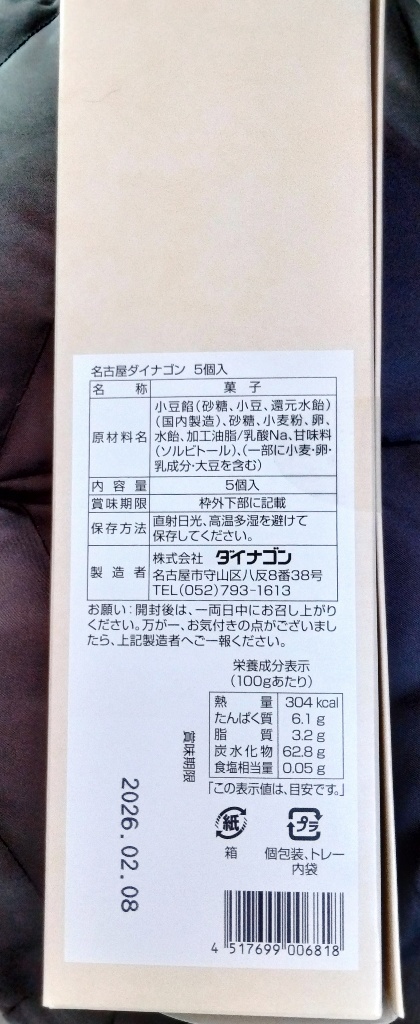 名古屋ダイナゴン 5個入
名 称 菓 子
原材料名 小豆餡(砂糖、小豆、還元水飴)
(国内製造)、砂糖、小麦粉、卵、
水飴、加工油脂/乳酸Na、甘味料
(ソルビトール)、(一部に小麦・卵・
乳成分・大豆を含む)
内 容 量 5個入
賞味期限 枠外下部に記載
保存方法 直射日光、高温多湿を避けて
保存してください。
製 造 者 株式会社 ダイナゴン
名古屋市守山区八反8番38号
TEL(052)793-1613
お願い:開封後は、一両日中にお召し上がり
ください。万が一、お気付きの点がございまし
たら、上記製造者へご一報ください。
栄養成分表示
(100gあたり)
熱 量 304 kcal
たんぱく質 6.1 g
脂 質 3.2 g
炭水化物 62.8 g
食塩相当量 0.05 g
「この表示値は、目安です。」
賞味期限
2026.02.08
紙
箱
プラ
個包装、トレー
内袋
4 517699 006818